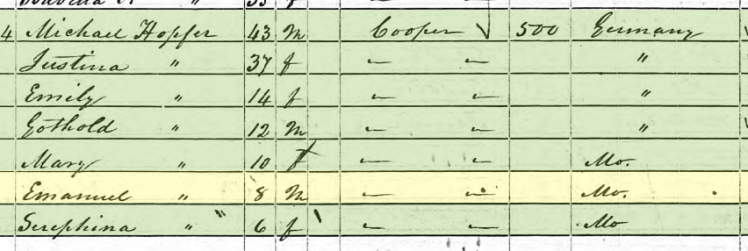 4 Michael Hopfer 43 m Cooper 500 Germany
Justina " 37 f — — "
Emily " 14 f — — "
Gothold " 12 m — — "
Mary " 10 f — — Mo.
Emanuel " 8 m — — Mo.
Serephina " 6 f — — Mo